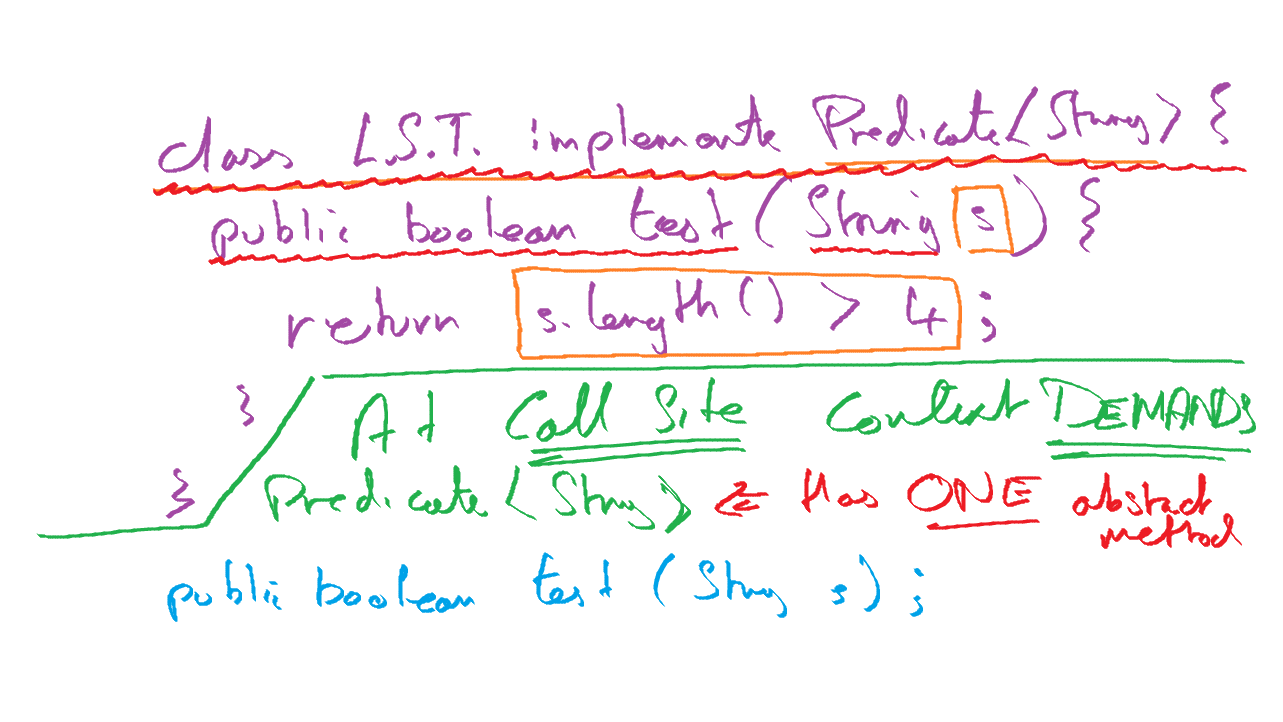 class L.S.T. implements Predicate<String> {
public boolean test (String s) {
return s.length() > 4 ;
}
At Call Site Context DEMANDS
}
Predicate<String> ⇐ Has ONE abstract method
public boolean test (String s) ;